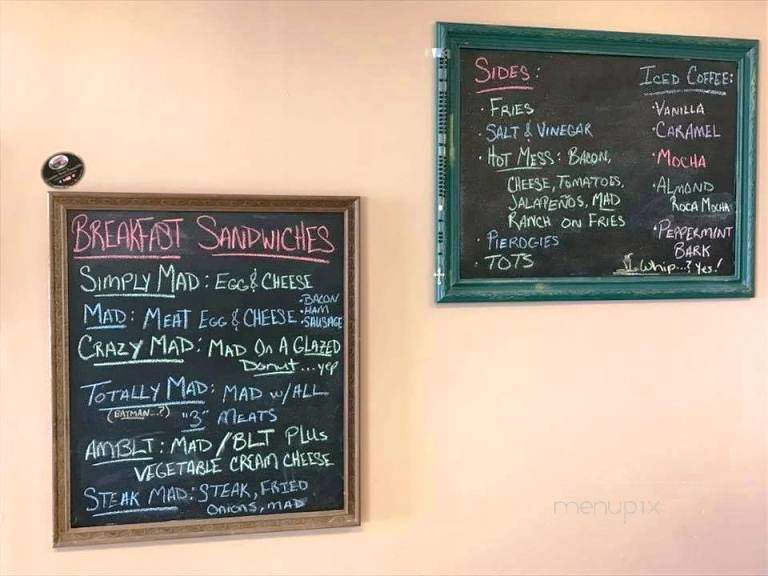 BREAKFAST SANDWICHES
SIMPLY MAD: EGG & CHEESE
MAD: MEAT EGG & CHEESE
·BACON
·HAM
·SAUSAGE
CRAZY MAD: MAD On A GLAZED
Donut...yep
TOTALLY MAD: MAD w/ALL
(BATMAN...?) "3" MEATS
AMBLT: MAD/BLT PLUs
VEGETABLE CREAM CHEESE
STEAK MAD: STEAK, FRIED
Onions, MAD
SIDES:
· FRIES
· SALT & VINEGAR
· HOT MESS: BACON,
CHEESE, TOMATOES,
JALAPEÑOS, MAD
RANCH ON FRIES
· PIEROGIES
· TOTS
ICED COFFEE:
·VANILLA
·CARAMEL
·MOCHA
·ALMOND
ROCA MOCHA
·PEPPERMINT
BARK
Whip...? Yes!
menupix